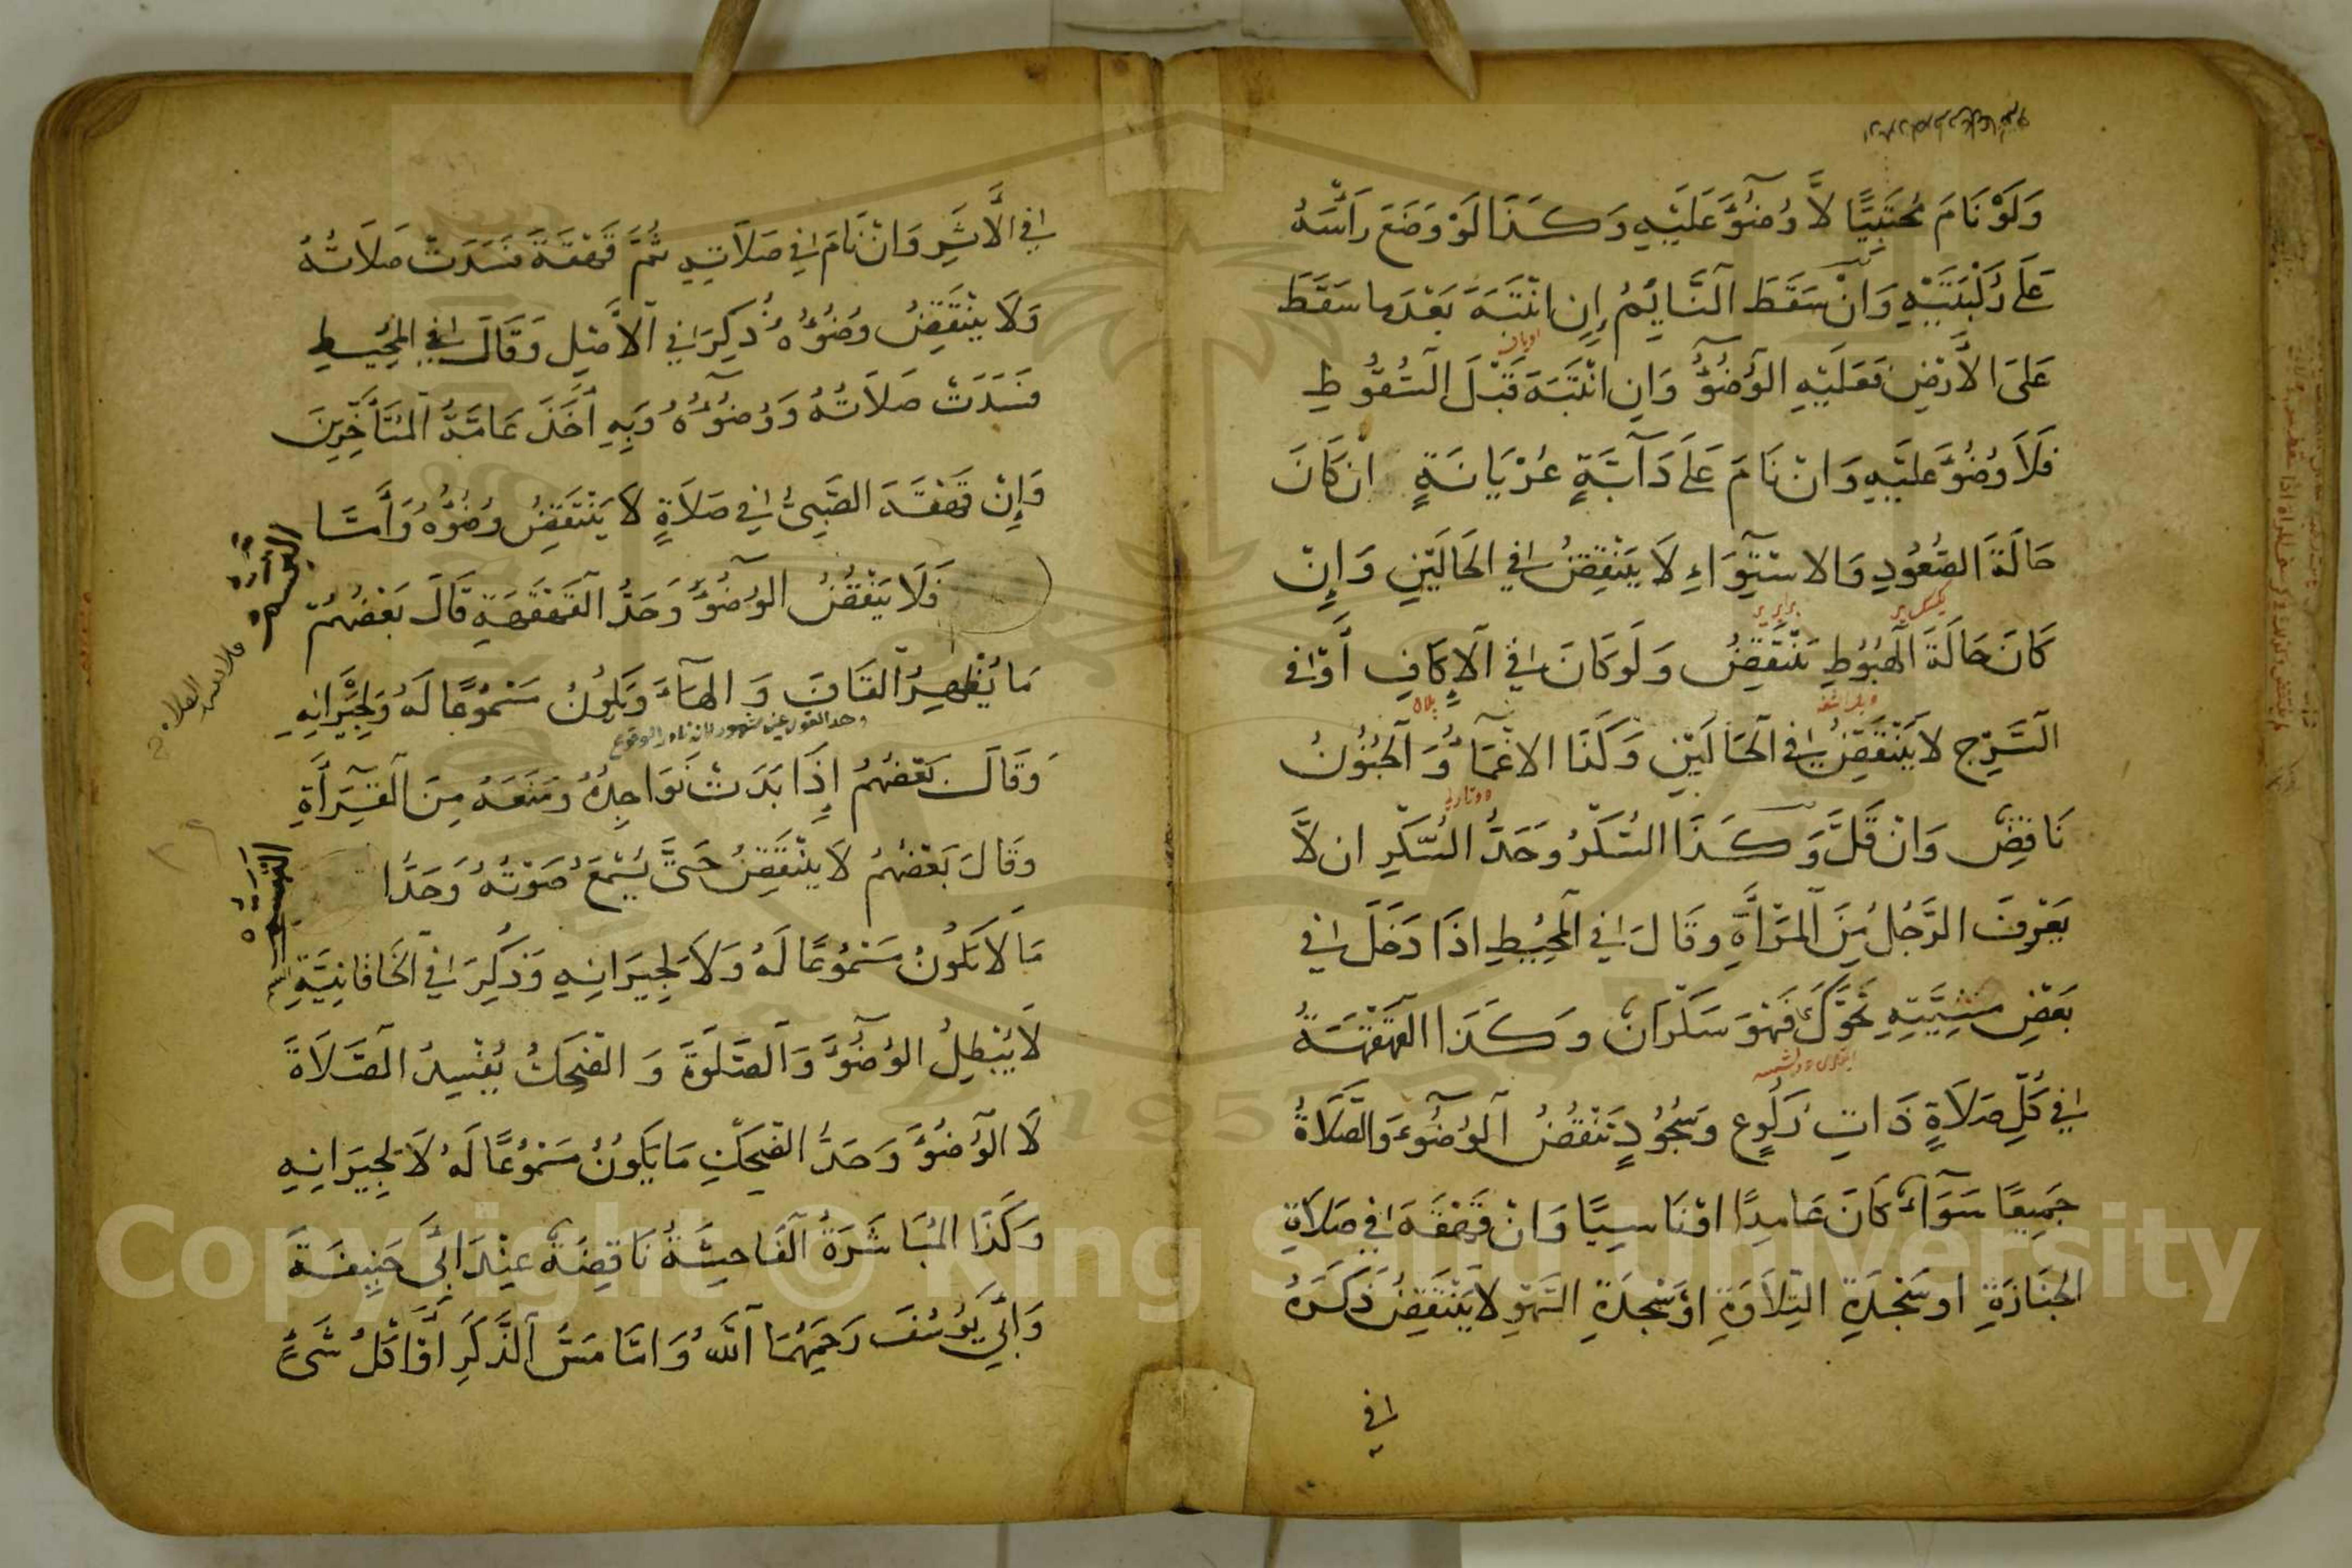 وَلَوْ نَامَ مُحْتَبِيًا لَا وُضُوءَ عَلَيْهِ وَكَذَا لَوْ وَضَعَ رَأْسَهُ
عَلَى رُكْبَتَيْهِ وَاِنْ سَقَطَ النَّايِمُ اِنِ انْتَبَهَ بَعْدَ ما سَقَطَ
عَلَى الْاَرْضِ فَعَلَيْهِ الْوُضُوءُ وَاِنِ انْتَبَهَ قَبْلَ السُّقُوطِ
فَلَا وُضُوءَ عَلَيْهِ وَاِنْ نَامَ عَلَى دَآبَّةٍ عُرْيَانَةٍ اِنْ كَانَ
حَالَةَ الصُّعُودِ وَالاسْتِوَاءِ لَا يَنْتَقِضُ فِي الْحَالَيْنِ وَاِنْ
كَانَ حَالَةَ الْهُبُوطِ يَنْتَقِضُ وَلَوْ كَانَ فِي الْاِكَافِ اَوْ فِي
السَّرْجِ لَا يَنْتَقِضُ فِي الْحَالَيْنِ وَكَذَا الاغْمَآءُ وَالْجُنُونُ
نَاقِضٌ وَاِنْ قَلَّ وَكَذَا السُّكْرُ وَحَدُّ السُّكْرِ ان لَا
يَعْرِفَ الرَّجُلُ مِنَ الْمَرْأَةِ وَقَالَ فِي الْمُحِيطِ اِذَا دَخَلَ فِي
بَعْضِ مَشْيَتِهِ تَحَرُّكٌ فَهُوَ سَكْرَانُ وَكَذَا الْقَهْقَهَةُ
فِي كُلِّ صَلَاةٍ ذَاتِ رُكُوعٍ وَسُجُودٍ تَنْقُضُ الْوُضُوءَ وَالصَّلَاةَ
جَمِيعًا سَوَآءٌ كَانَ عَامِدًا اَوْ نَاسِيًا وَاِنْ قَهْقَهَ فِي صَلَاةِ
الْجَنَازَةِ اَوْ سَجْدَةِ التِّلَاوَةِ اَوْ سَجْدَةِ السَّهْوِ لَا يَنْتَقِضُ ذَكَرَهُ
فى
فِي الْاَثَرِ وَاِنْ نَامَ فِي صَلَاتِهِ ثُمَّ قَهْقَهَ فَسَدَتْ صَلَاتُهُ
وَلَا يَنْتَقِضُ وُضُوءُهُ ذُكِرَ فِي الْاَصْلِ وَقَالَ فِي الْمُحِيطِ
فَسَدَتْ صَلَاتُهُ وَوُضُوءُهُ وَبِهِ اَخَذَ عَامَّةُ الْمُتَأَخِّرِينَ
وَاِنْ قَهْقَهَ الصَّبِيُّ فِي صَلَاةٍ لَا يَنْتَقِضُ وُضُوءُهُ وَاَمَّا
التَّبَسُّمُ
فَلَا يَنْقُضُ الْوُضُوءَ وَحَدُّ الْقَهْقَهَةِ قَالَ بَعْضُهُمْ
مَا يُظْهِرُ الْقَافَ وَالْهَاءَ وَيَكُونُ مَسْمُوعًا لَهُ وَلِجِيرَانِهِ
وهذ القول غير مشهور لانه نادر الوقوع
وَقَالَ بَعْضُهُمْ اِذَا بَدَتْ نَوَاجِذُهُ وَمَنَعَهُ مِنَ الْقِرَأَةِ
وَقَالَ بَعْضُهُمْ لَا يَنْتَقِضُ حَتَّى يُسْمَعَ صَوْتُهُ وَحَدُّ
التَّبَسُّمِ
مَا لَا يَكُونُ مَسْمُوعًا لَهُ وَلَا لِجِيرَانِهِ وَذُكِرَ فِي الْخَاقَانِيَّةِ
لَا يُبْطِلُ الْوُضُوءَ وَالصَّلٰوةَ وَالضَّحِكُ يُفْسِدُ الصَّلَاةَ
لَا الْوُضُوءَ وَحَدُّ الضَّحِكِ مَا يَكُونُ مَسْمُوعًا لَهُ لَا لِجِيرَانِهِ
وَكَذَا الْمُبَاشَرَةُ الْفَاحِشَةُ نَاقِضَةٌ عِنْدَ اَبِي حَنِيفَةَ
وَاَبِي يُوسُفَ رَحِمَهُمَا اللهُ وَاَمَّا مَسُّ الذَّكَرِ اَوْ اَكْلُ شَيْءٍ
Copyright © King Saud University
1957